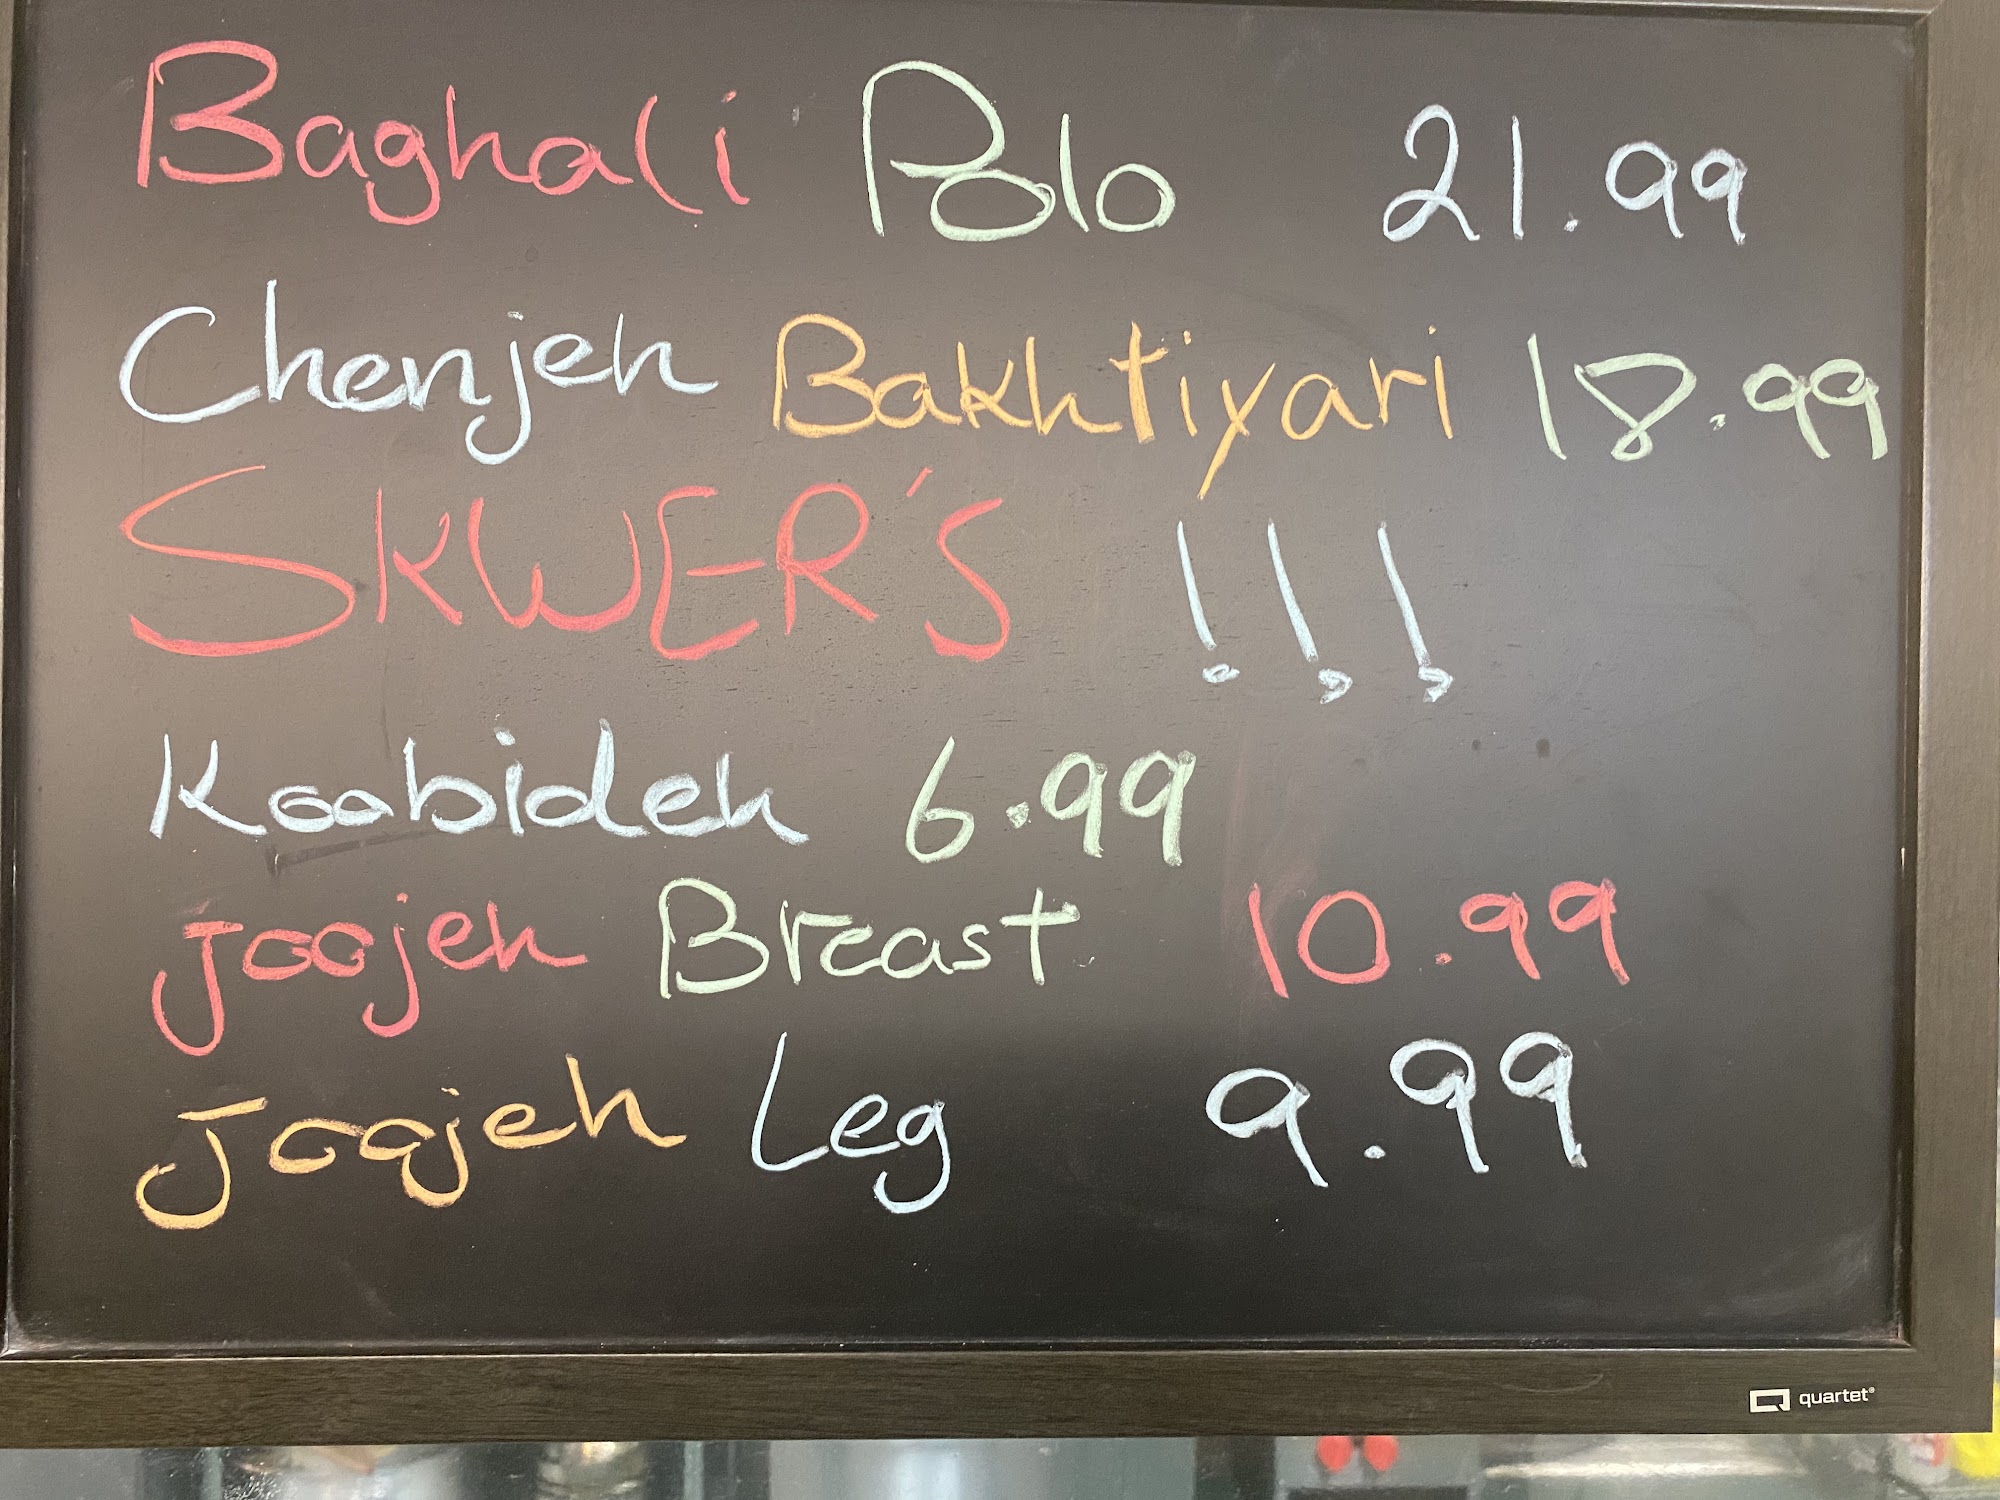 Baghali Polo 21.99
Chenjeh Bakhtiyari 18.99
SKWER'S !!!
Koobideh 6.99
Joojeh Breast 10.99
Joojeh Leg 9.99
quartet®